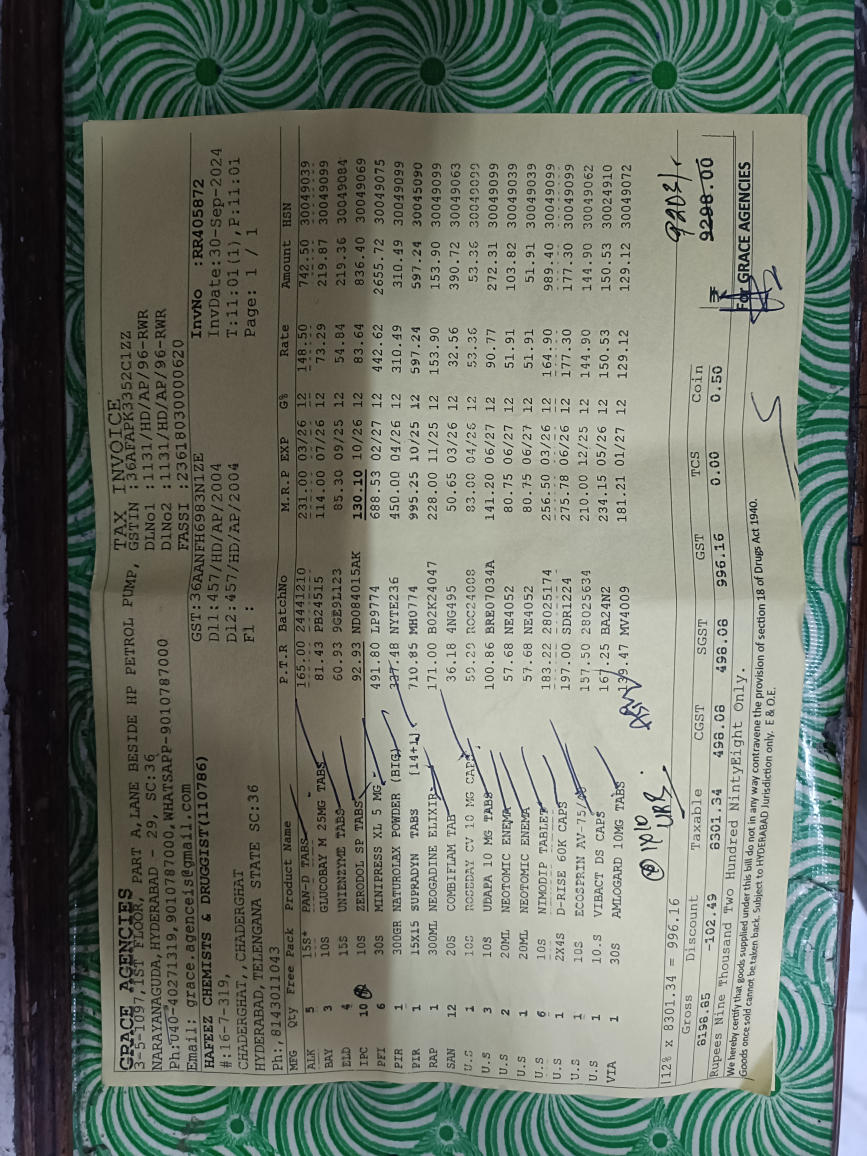 TAX INVOICE
GRACE AGENCIES
3-5-1097,1ST FLOOR, PART A,LANE BESIDE HP PETROL PUMP, GSTIN :36AFAPK3352C1ZZ
NARAYANAGUDA,HYDERABAD - 29, SC:36 DLNo1 :1131/HD/AP/96-RWR
Ph:040-40271319,9010787000,WHATSAPP-9010787000 DlNo2 :1131/HD/AP/96-RWR
Email: grace.agenceis@gmail.com FASSI :23618030000620
HAFEEZ CHEMISTS & DRUGGIST(110786) GST:36AANFH6983N1ZE InvNo :RR405872
#:16-7-319, Dl1:457/HD/AP/2004 InvDate:30-Sep-2024
CHADERGHAT,,CHADERGHAT Dl2:457/HD/AP/2004 T:11:01(1),P:11:01
HYDERABAD,TELENGANA STATE SC:36 Fl : Page: 1 / 1
Ph:,8143011043
MFG Qty Free Pack Product Name P.T.R BatchNo M.R.P EXP G% Rate Amount HSN
ALK 5 15S* PAN-D TABS 165.00 24441210 231.00 03/26 12 148.50 742.50 30049039
BAY 3 10S GLUCOBAY M 25MG TABS 81.43 PB24515 114.00 07/26 12 73.29 219.87 30049099
ELD 4 15S UNIENZYME TABS 60.93 9GE9L123 85.30 09/25 12 54.84 219.36 30049084
IPC 10 10S ZERODOL SP TABS 92.93 ND084015AK 130.10 10/26 12 83.64 836.40 30049069
PFI 6 30S MINIPRESS XL 5 MG 491.80 LP9774 688.53 02/27 12 442.62 2655.72 30049075
PIR 1 300GR NATUROLAX POWDER (BIG) 337.48 NYTE236 450.00 04/26 12 310.49 310.49 30049099
PIR 1 15X15 SUPRADYN TABS [14+1] 710.85 MH0774 995.25 10/25 12 597.24 597.24 30045090
RAP 1 300ML NEOGADINE ELIXIR 171.00 B02K24047 228.00 11/25 12 153.90 153.90 30049099
SAN 12 20S COMBIFLAM TAB 36.18 4NG495 50.65 03/26 12 32.56 390.72 30049063
U.S 1 10S ROSEDAY CV 10 MG CAPS 59.29 ROC24008 83.00 04/26 12 53.36 53.36 30049099
U.S 3 10S UDAPA 10 MG TABS 100.86 BRE07034A 141.20 06/27 12 90.77 272.31 30049099
U.S 2 20ML NEOTOMIC ENEMA 57.68 NE4052 80.75 06/27 12 51.91 103.82 30049039
U.S 1 20ML NEOTOMIC ENEMA 57.68 NE4052 80.75 06/27 12 51.91 51.91 30049039
U.S 6 10S NIMODIP TABLET 183.22 28025174 256.50 03/26 12 164.90 989.40 30049099
U.S 1 2X4S D-RISE 60K CAPS 197.00 SDR1224 275.78 06/26 12 177.30 177.30 30049099
U.S 1 10S ECOSPRIN AV-75/ 157.50 28025634 210.00 12/25 12 144.90 144.90 30049062
U.S 1 10..S VIBACT DS CAPS 167.25 BA24N2 234.15 05/26 12 150.53 150.53 30024910
VIA 1 30S AMLOGARD 10MG TABS 139.47 MV4009 181.21 01/27 12 129.12 129.12 30049072
9203/-
|12% x 8301.34 = 996.16
Gross Discount Taxable CGST SGST GST TCS Coin
8198.85 -102.49 8301.34 498.08 498.08 996.16 0.00 0.50 ₹ 9298.00
Rupees Nine Thousand Two Hundred NintyEight Only.
For GRACE AGENCIES
We hereby certify that goods supplied under this bill do not in any way contravene the provision of section 18 of Drugs Act 1940.
Goods once sold cannot be taken back. Subject to HYDERABAD Jurisdiction only. E & O.E.